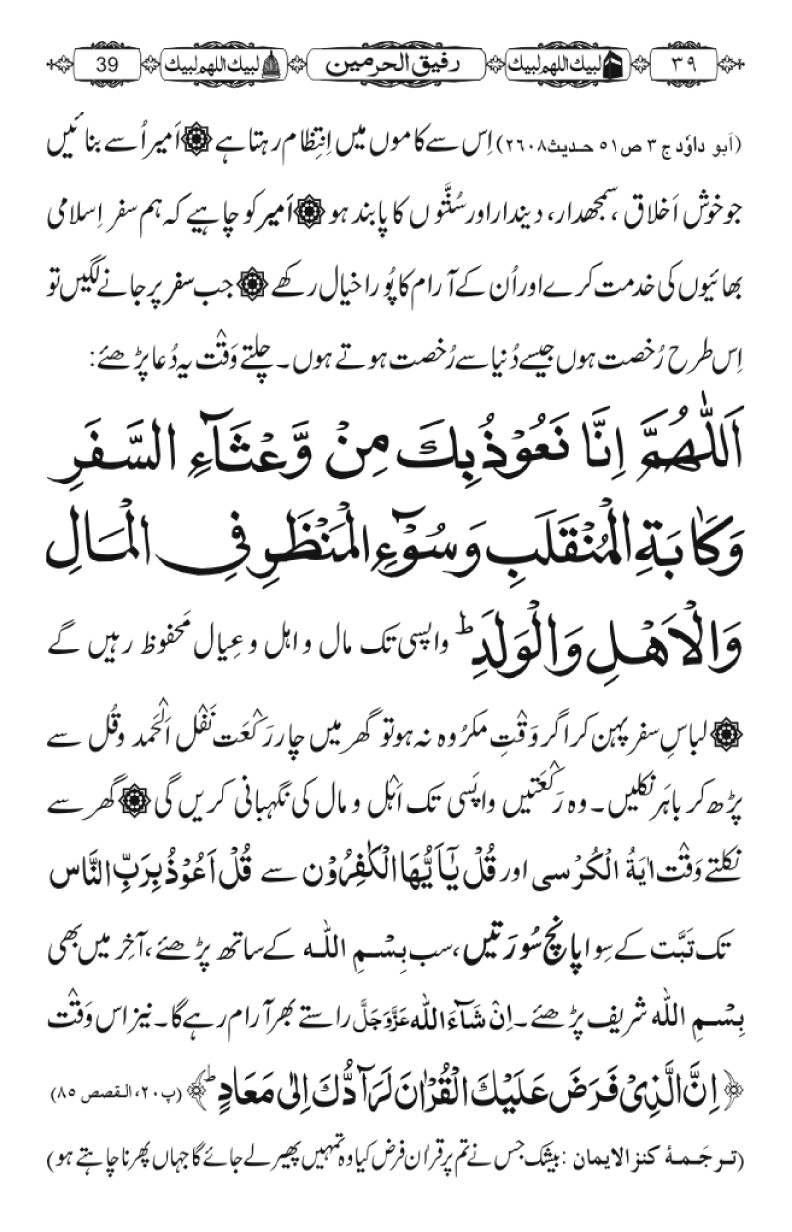 ۳۹ لبیك اللهم لبیك رفیق الحرمین لبیك اللهم لبیك 39
(اَبو داوٗد ج ۳ ص۵۱ حدیث۲۶۰۸) اِس سے کاموں میں اِنتِظام رہتا ہے ۞ اَمیر اُسے بنائیں
جو خوش اَخلاق ، سمجھدار، دیندار اور سُنَّتوں کا پابند ہو ۞ اَمیر کو چاہیے کہ ہم سفر اِسلامی
بھائیوں کی خدمت کرے اور اُن کے آرام کا پُورا خیال رکھے ۞ جب سفر پر جانے لگیں تو
اِس طرح رُخصت ہوں جیسے دُنیا سے رُخصت ہوتے ہوں۔ چلتے وَقْت یہ دُعا پڑھئے:
اَللّٰهُمَّ اِنَّا نَعُوْذُ بِكَ مِنْ وَّعْثَآءِ السَّفَرِ
وَكَاٰبَةِ الْمُنْقَلَبِ وَسُوْٓءِ الْمَنْظَرِ فِی الْمَالِ
وَالْاَهْلِ وَالْوَلَدِ ؕ واپسی تک مال و اہل و عِیال مَحفوظ رہیں گے
۞ لباسِ سفر پہن کر اگر وَقْتِ مکرُوہ نہ ہو تو گھر میں چار رَکْعَت نَفْل اَلْحَمد و قُل سے
پڑھ کر باہَر نکلیں۔ وہ رَکْعَتیں واپَسی تک اَہْل و مال کی نگہبانی کریں گی ۞ گھر سے
نکلتے وَقْت اٰیَةُ الْکُرْسی اور قُلْ یٰۤاَیُّهَا الْكٰفِرُوْن سے قُلْ اَعُوْذُ بِرَبِّ النَّاس
تک تَبَّت کے سِوا پانچ سُورَتیں، سب بِسْمِ اللہ کے ساتھ پڑھئے، آخِر میں بھی
بِسْمِ اللہ شریف پڑھئے۔ اِنْ شَآءَ اللہ عَزَّوَجَلَّ راستے بھر آرام رہے گا۔ نیز اس وَقْت
﴿اِنَّ الَّذِیْ فَرَضَ عَلَیْكَ الْقُرْاٰنَ لَرَآدُّكَ اِلٰى مَعَادٍ ؕ﴾ (پ۲۰، القصص ۸۵)
(ترجَمۂ کنز الایمان : بیشک جس نے تم پر قرآن فرض کیا وہ تمہیں پھیر لے جائے گا جہاں پھرنا چاہتے ہو)